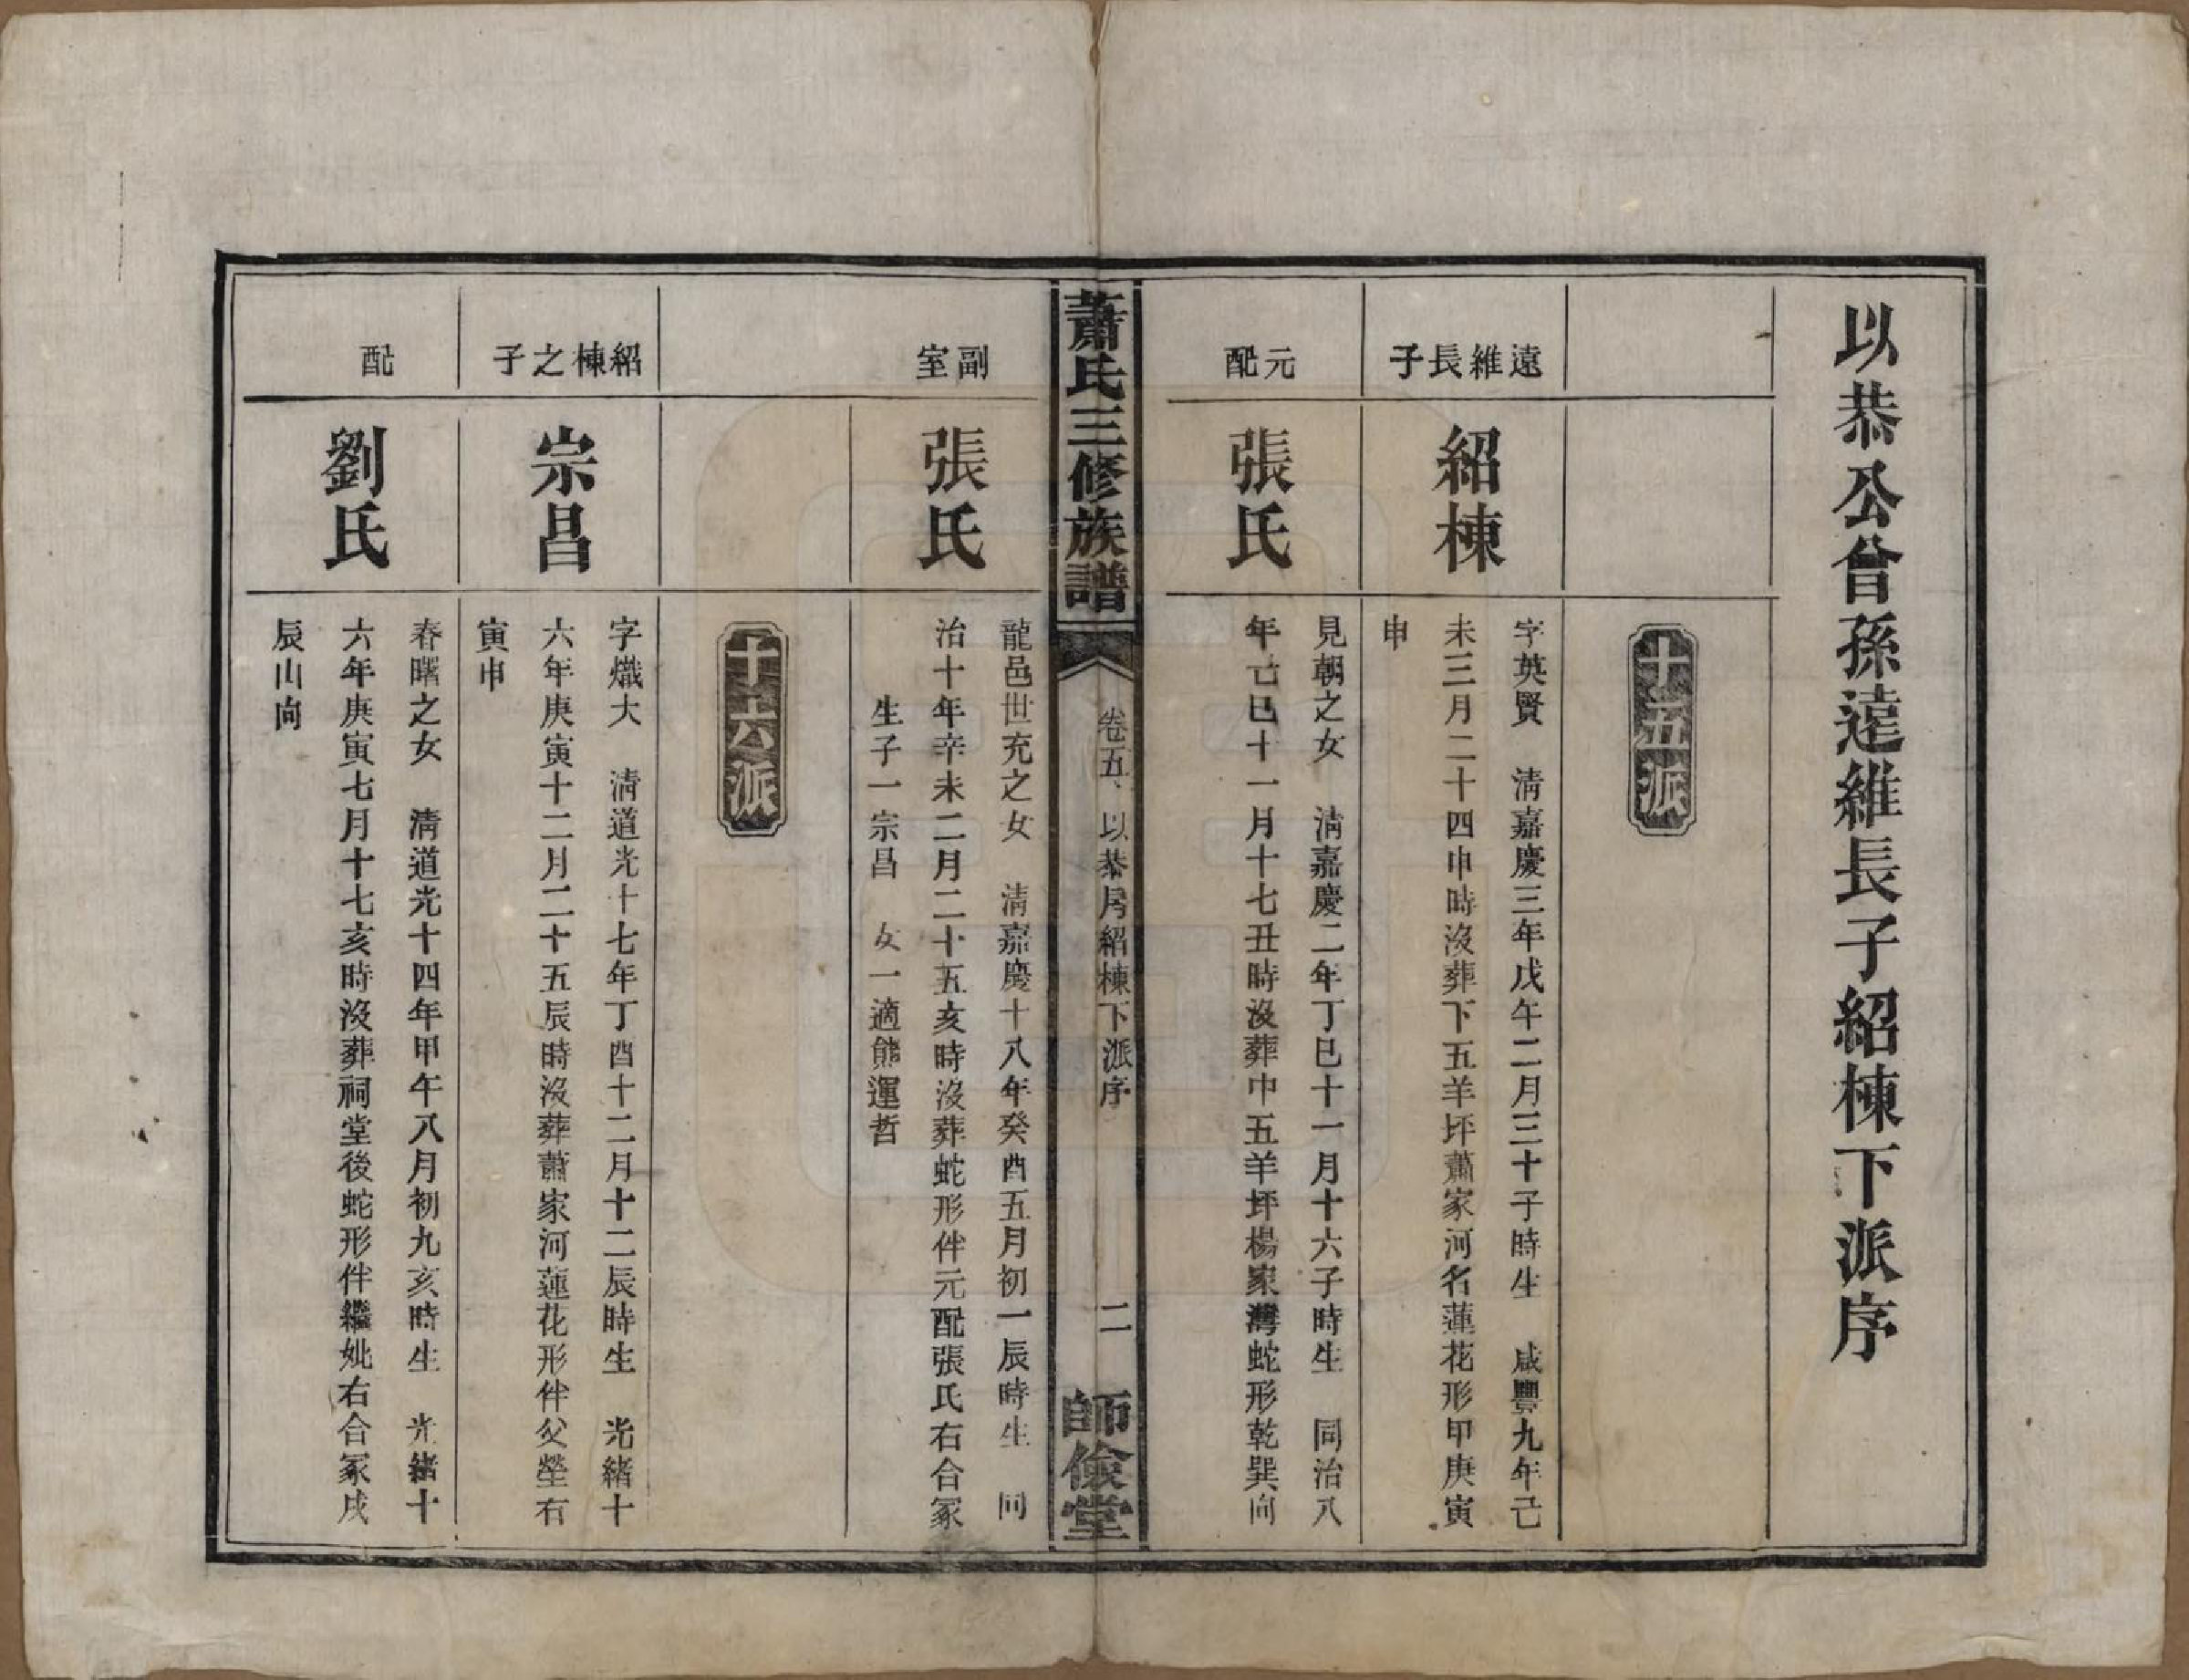 以恭公曾孫逺維長子紹棟下派序
十五派
遠維長子
紹棟
字英賢　清嘉慶三年戊午二月三十子時生　咸豐九年己
未三月二十四申時沒葬下五羊坪蕭家河名蓮花形甲庚寅
申
元配
張氏
見朝之女　清嘉慶二年丁巳十一月十六子時生　同治八
年己巳十一月十七丑時沒葬中五羊坪楊家灣蛇形乾巽向
蕭氏三修族譜
卷五、以恭房紹棟下派序
二
師儉堂
副室
張氏
龍邑世充之女　清嘉慶十八年癸酉五月初一辰時生　同
治十年辛未二月二十五亥時沒葬蛇形伴元配張氏右合冢
生子一宗昌　女一適熊運哲
十六派
紹棟之子
宗昌
字熾大　清道光十七年丁酉十二月十二辰時生　光緒十
六年庚寅十二月二十五辰時沒葬蕭家河蓮花形伴父塋右
寅申
配
劉氏
春曙之女　清道光十四年甲午八月初九亥時生　光緒十
六年庚寅七月十七亥時沒葬祠堂後蛇形伴繼妣右合冢戌
辰山向